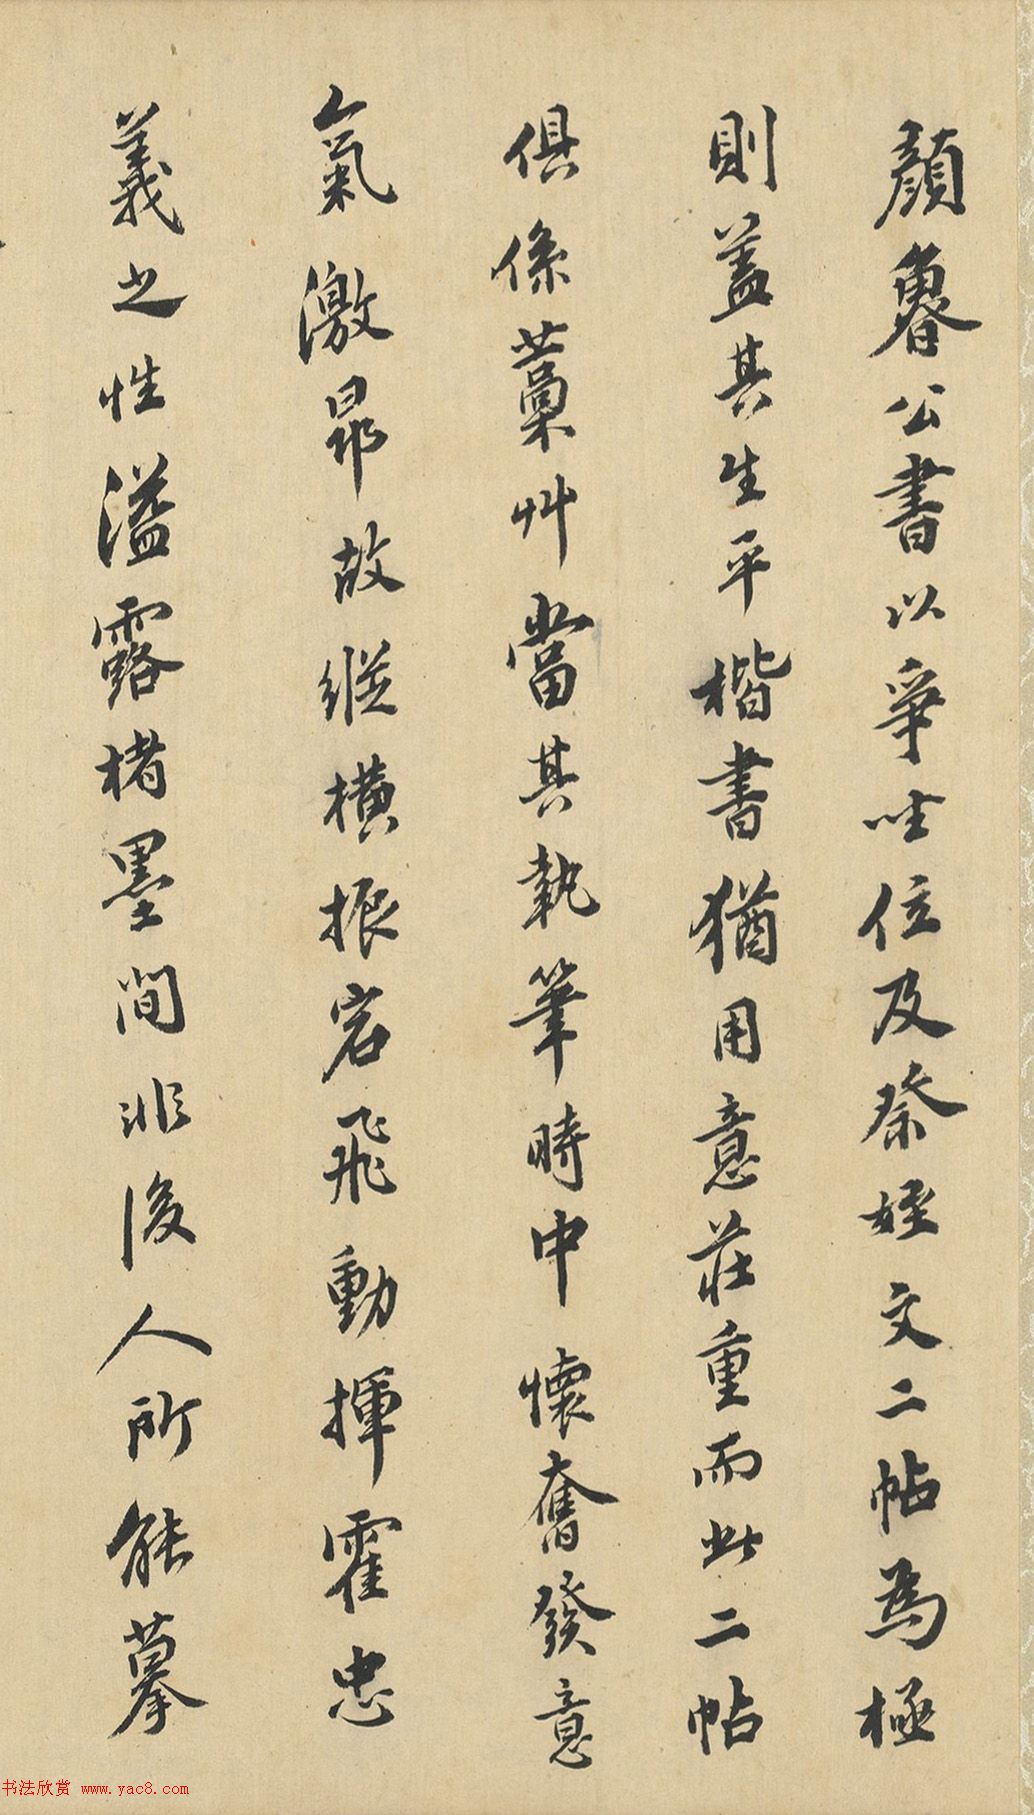 顏魯公書以爭坐位及祭姪文二帖為極
則蓋其生平楷書猶用意莊重而此二帖
俱係藁艸當其執筆時中懷奮發意
氣激昻故縱橫振宕飛動揮霍忠
義之性溢露楮墨間非後人所能摹
书法欣赏 www.yac8.com